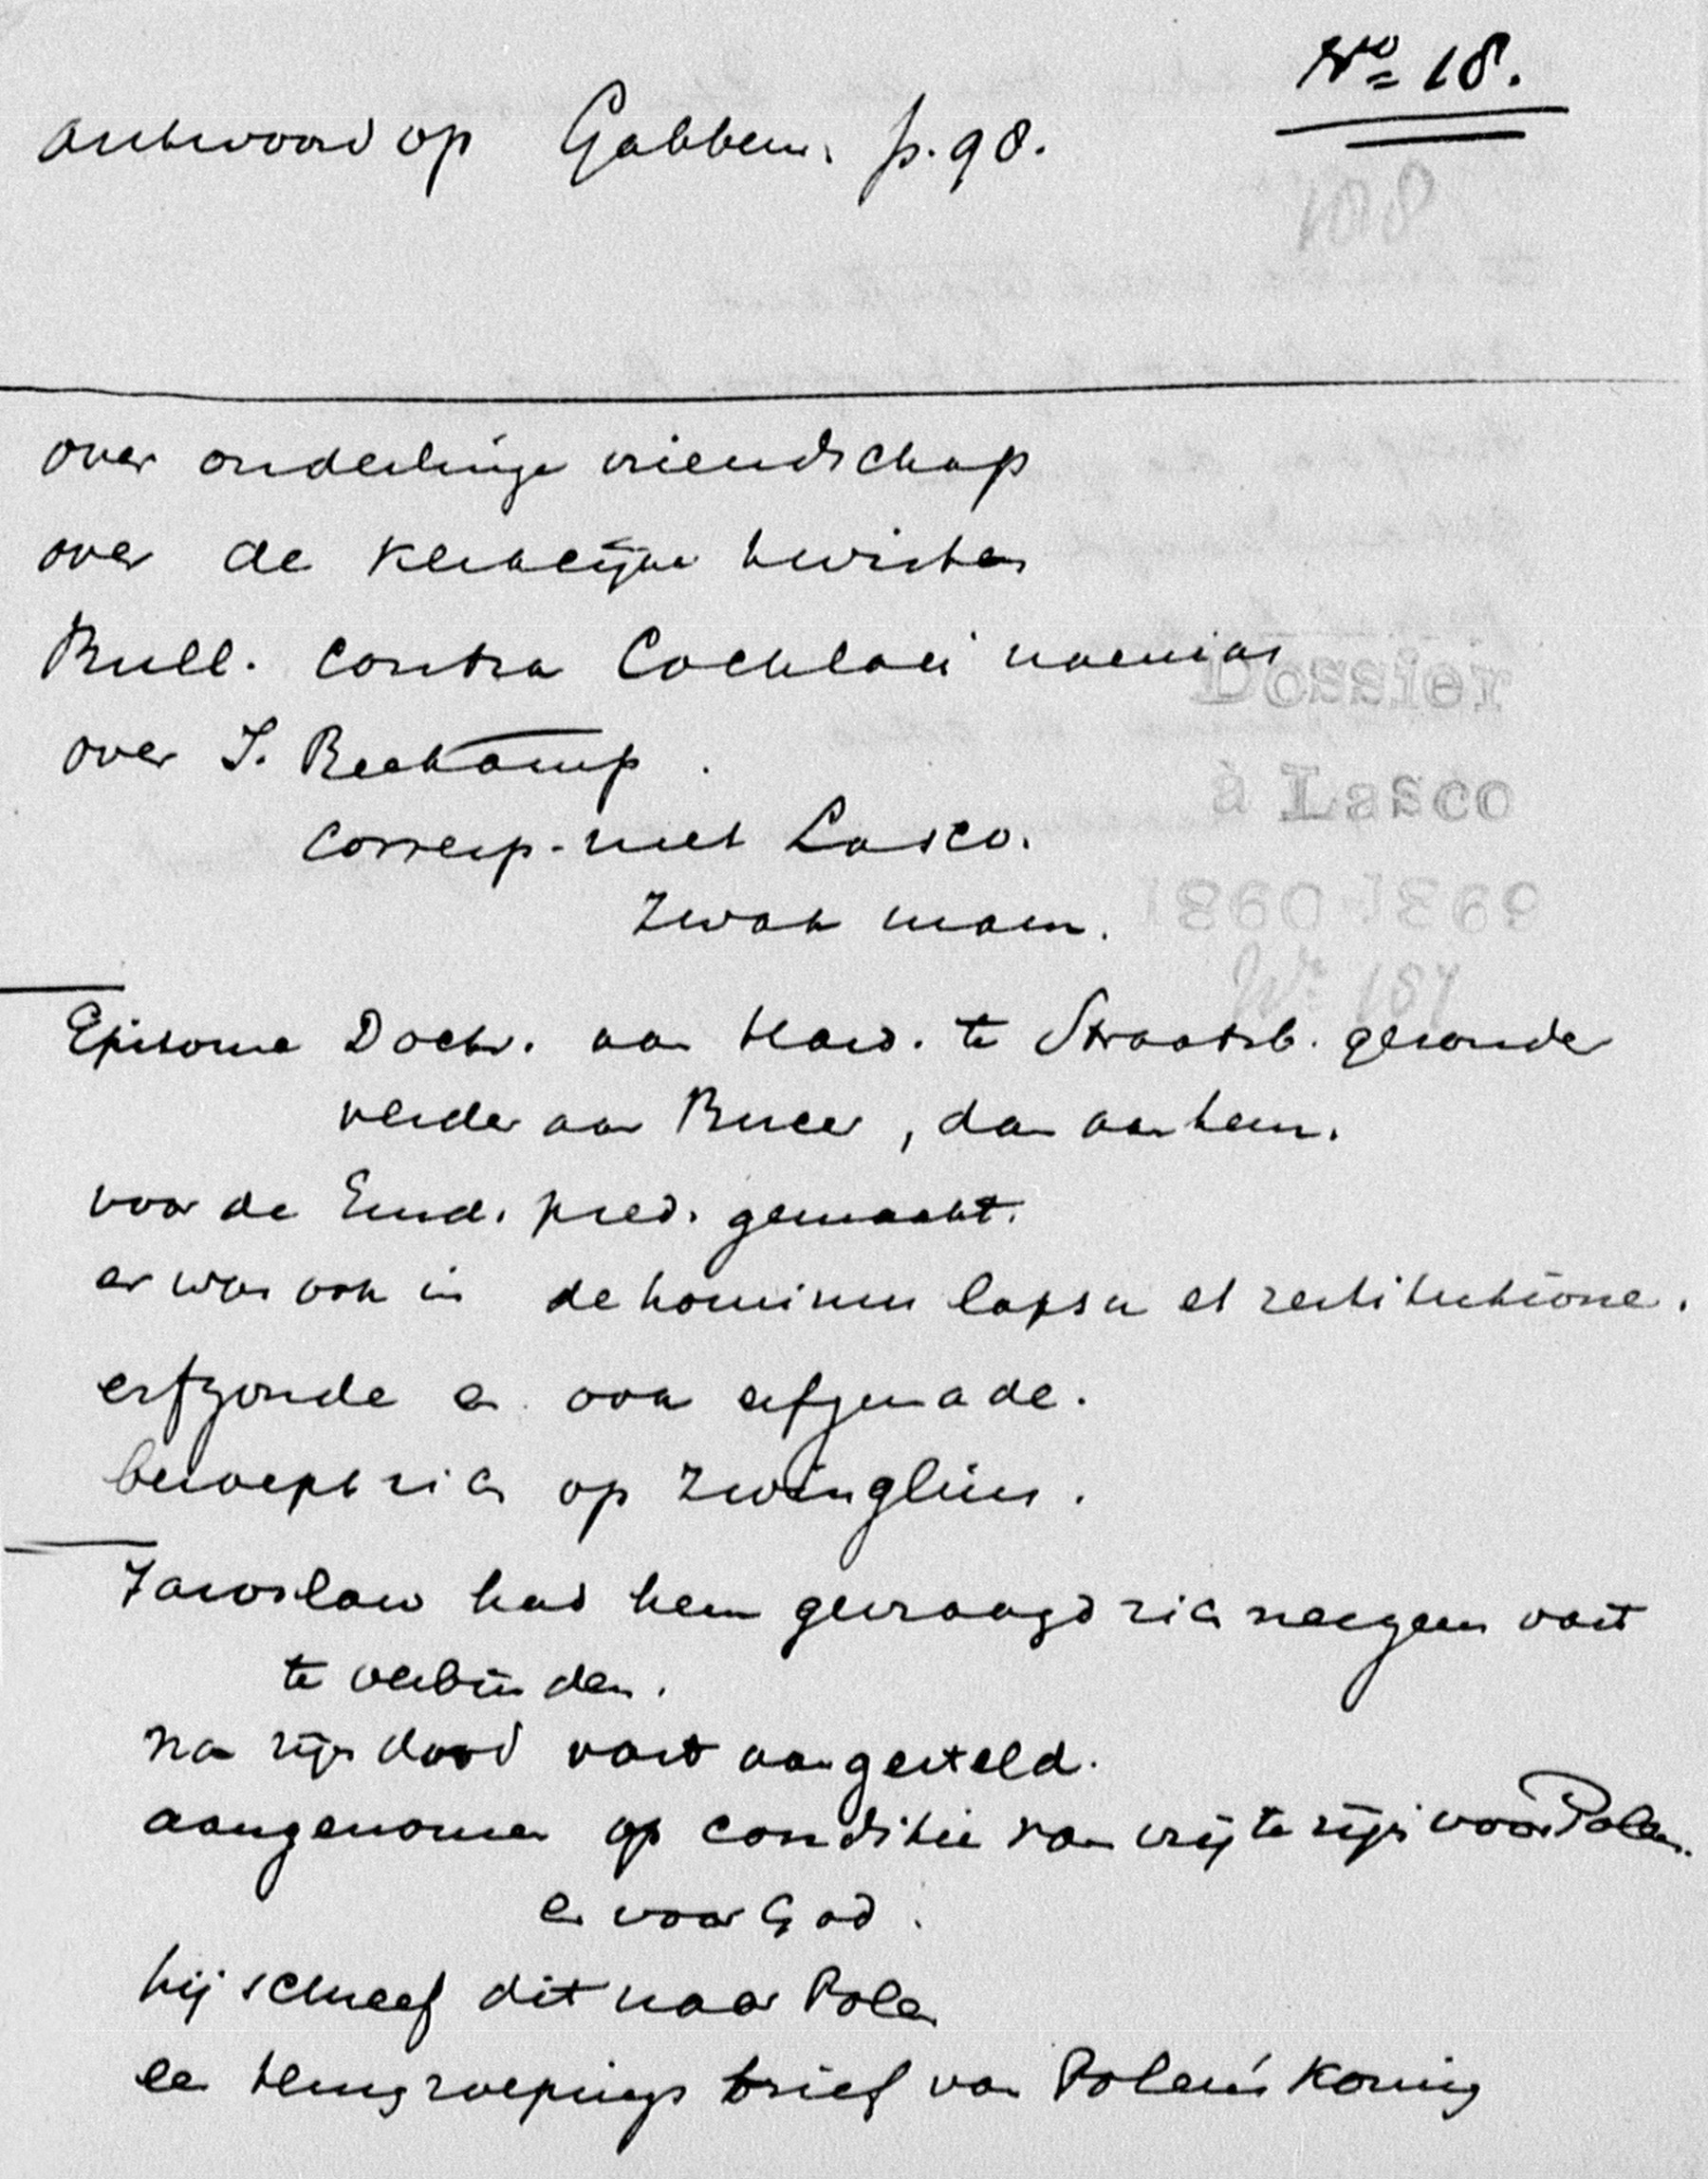 No 18.
antwoord op Gabbem. p. 98.
108
over onderlinge vriendschap
over de kerkelijke twisten
Bull. contra Cochlaei naenias
Dossier
over J. Beekamp.
à Lasco
corresp. met Lasco.
1860-1869
zwak man.
No 187
Epitome Doctr. aan Hard. te Straatsb. gezonden
verder aan Bucer, dan aan hem.
voor de Emd. pred. gemaakt.
er was ook in de hominum lapsu et restitutione.
erfzonde en ook erfgenade.
beroept zich op Zwinglius.
Jaroslaw had hem gevraagd zich nergens vast
te verbinden.
na zijn dood vast aangesteld.
aangenomen op conditie van vrij te zijn voor Polen.
en voor God.
hij schreef dit naar Polen
een terugroepings brief van Polen's Koning